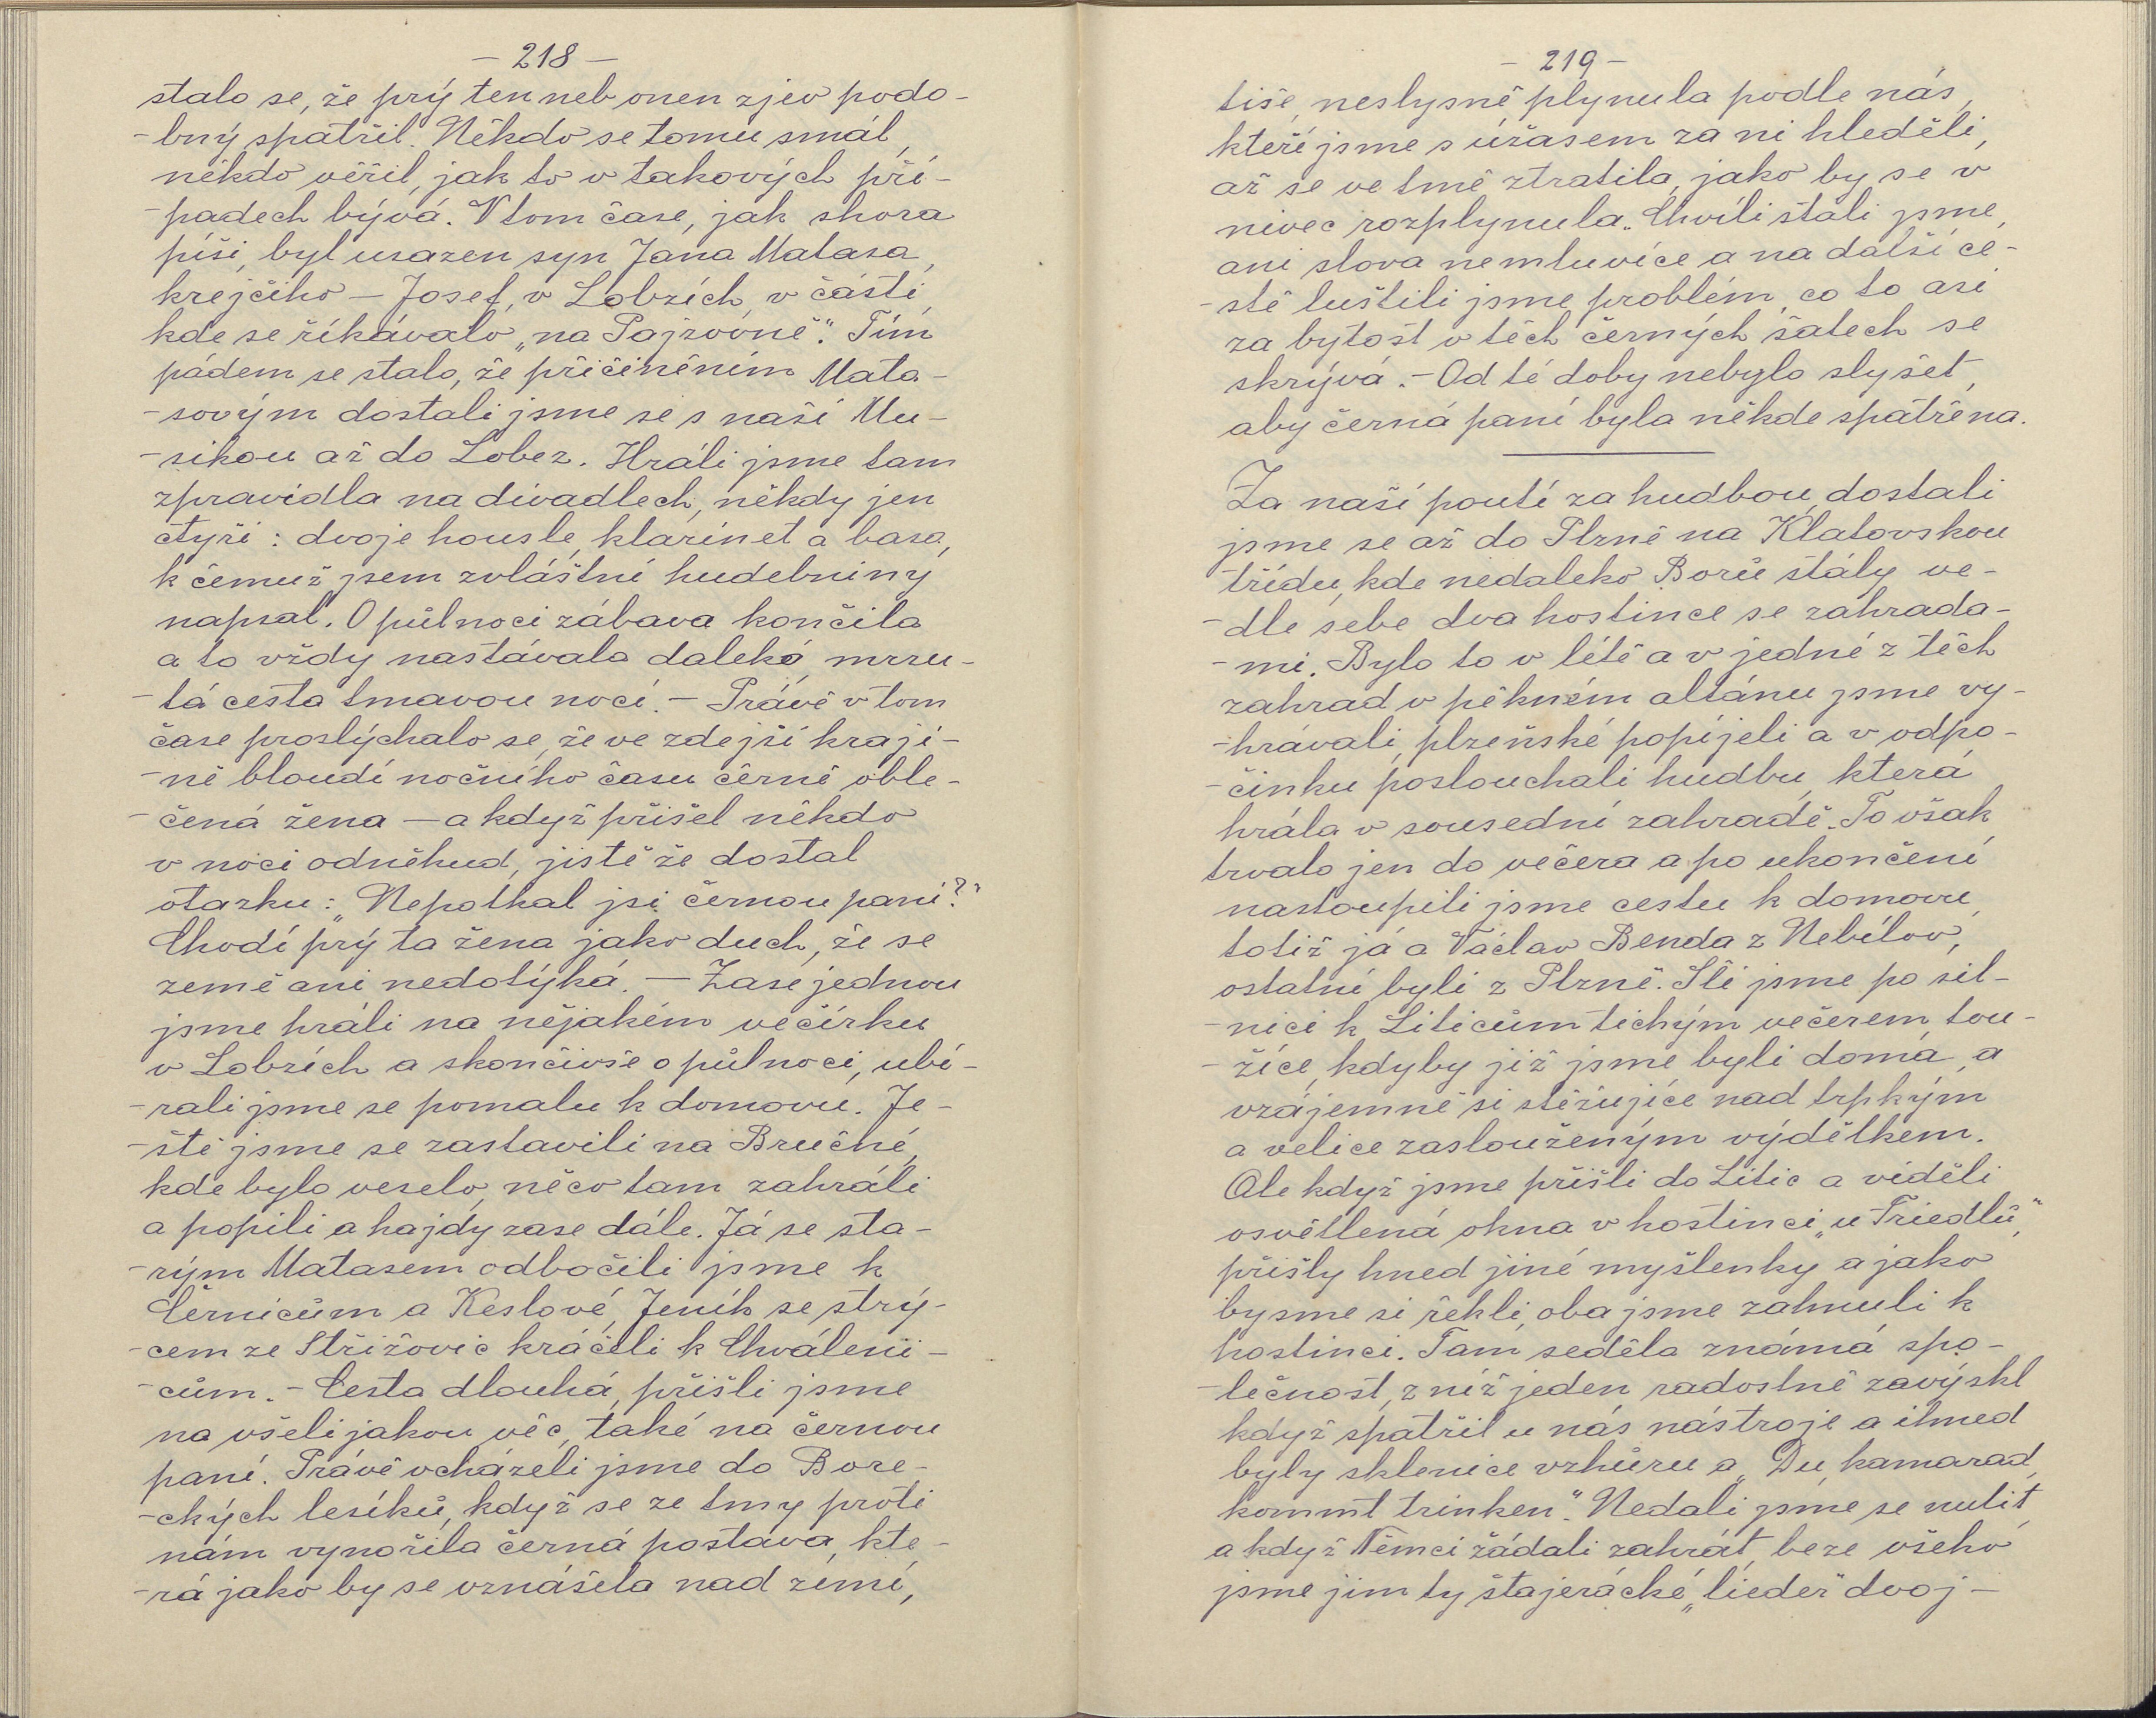 - 218 -
stalo se, že prý ten neb onen zjev podo-
-bný spatřil. Někdo se tomu smál,
někdo věřil, jak to v takových pří-
-padech bývá. V tom čase, jak shora
píši, byl usazen syn Jana Matasa,
krejčího - Josef, v Lobzích, v části,
kde se říkávalo „na Pajzovně". Tím
pádem se stalo, že přičiněním Mata-
-sovým dostali jsme se s naší Mu-
-sikou až do Lobez. Hráli jsme tam
zpravidla na divadlech, někdy jen
čtyři: dvoje housle, klarinet a basa,
k čemuž jsem zvláštní hudebniny
napsal. O půlnoci zábava končila
a to vždy nastávala daleká, mrzu-
-tá cesta tmavou nocí. - Právě v tom
čase proslýchalo se, že ve zdejší kraji-
-ně bloudí nočního času černě oble-
-čená žena - a když přišel někdo
v noci odněkud, jistě že dostal
otazku: „Nepotkal jsi černou paní?"
Chodí prý ta žena jako duch, že se
země ani nedotýká. - Zase jednou
jsme hráli na nějakém večírku
v Lobzích a skončivše o půlnoci, ubí-
-rali jsme se pomalu k domovu. Je-
-ště jsme se zastavili na Bručné,
kde bylo veselo, něco tam zahráli
a popili a hajdy zase dále. Já se sta-
-rým Matasem odbočili jsme k
Černicům a Keslové, Jeník se strý-
-cem ze Střižovic kráčeli k Chváleni-
-cům. - Cesta dlouhá, přišli jsme
na všelijakou věc, také na černou
paní. Právě vcházeli jsme do Bore-
-ckých lesíků, když se ze tmy proti
nám vynořila černá postava, kte-
-rá jako by se vznášela nad zemí,
- 219 -
tiše, neslysně plynula podle nás,
kteří jsme s úžasem za ni hleděli,
až se ve tmě ztratila, jako by se v
nivec rozplynula. Chvíli stáli jsme,
ani slova nemluvíce a na další ce-
-stě luštili jsme problém, co to asi
za bytost v těch černých šatech se
skrývá. - Od té doby nebylo slyšet,
aby černá paní byla někde spatřena.
Za naší poutí za hudbou, dostali
jsme se až do Plzně na Klatovskou
třídu, kde nedaleko Borů stály ve-
-dle sebe dva hostince se zahrada-
-mi. Bylo to v létě a v jedné z těch
zahrad v pěkném altánu jsme vy-
-hrávali, plzeňské popíjeli a v odpo-
-činku poslouchali hudbu, která
hrála v sousední zahradě. To však
trvalo jen do večera a po ukončení
nastoupili jsme cestu k domovu,
totiž já a Václav Benda z Nebílov,
ostatní byli z Plzně. Šli jsme po sil-
-nici k Liticům tichým večerem, tou-
-žíce, kdyby již jsme byli doma, a
vzájemně si stěžujíce nad trpkým
a velice zaslouženým výdělkem.
Ale když jsme přišli do Litic a viděli
osvětlená okna v hostinci „u Friedlů",
přišly hned jiné myšlenky a jako
bysme si řekli, oba jsme zahnuli k
hostinci. Tam seděla známá spo-
-lečnost, z níž jeden radostně zavýskl
když spatřil u nás nástroje a ihned
byly sklenice vzhůru a „Du, kamarad,
kommt trinken". Nedali jsme se nutit
a když Němci žádali zahrát, beze všeho
jsme jim ty štajerácké „lieder" dvoj-